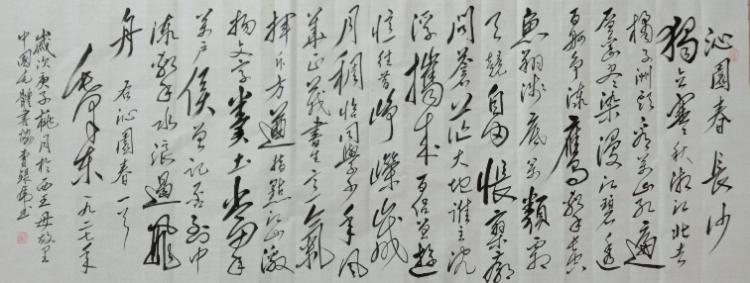 沁園春 長沙
獨立寒秋湘江北去
橘子洲頭看萬山紅遍
層林尽染漫江碧透
百舸争流鷹擊長空
魚翔淺底萬類霜
天競自由悵寥廓
問蒼茫大地誰主沉
浮攜來百侣曾遊
憶往昔崢嶸歲
月稠恰同學少年風
華正茂書生意氣
揮斥方遒指點江山激
揚文字糞土當年
萬户侯曾記否到中
流擊水浪遏飛
舟 右沁園春一首
毛澤東 一九二五年
歲次庚子桃月於西王母故里
中國毛體書協